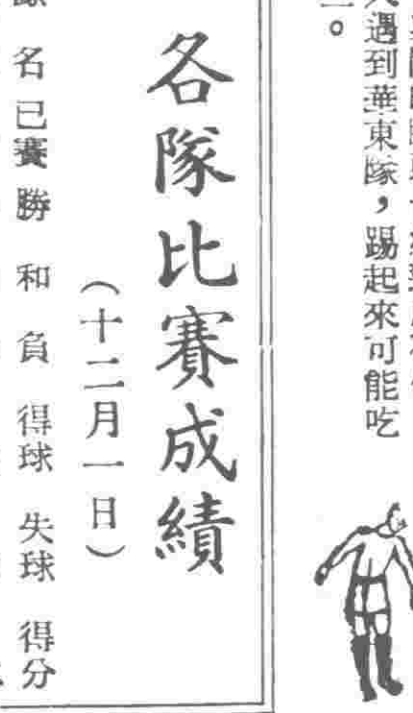 遇到華東隊，踢起來可能吃
。
各隊比賽成績
（十二月一日）
名 已賽 勝 和 負 得球 失球 得分